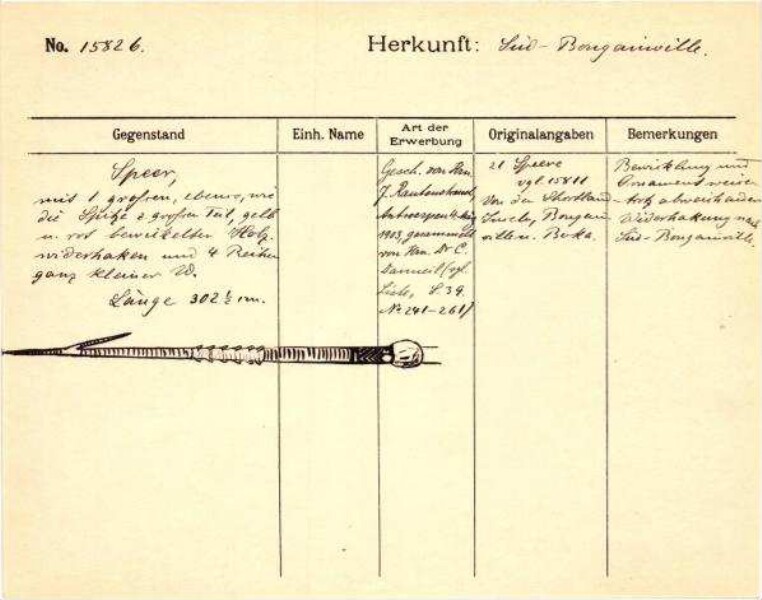 No. 15826.
Herkunft: Süd-Bougainville.
Gegenstand
Einh. Name
Art der Erwerbung
Originalangaben
Bemerkungen
Speer,
mit 1 großen, ebenso, wie
die Spitze z. großen Teil, gelb
u. rot bewickelten Holz-
widerhaken und 4 Reihen
ganz kleiner W.
Länge 302 ½ cm.
Gesch. von Hrn.
J. Rautenstrauch,
Antwerpen
1903, gesammelt
von Hrn. Dr C.
Danneil (vgl.
Liste, S. 39.
No 241-261)
21 Speere
vgl. 15811
Von den Shortland-
Inseln, Bougain-
ville u. Buka.
Bewicklung und
Ornament weisen
trotz abweichender
Widerhakung nach
Süd-Bougainville.